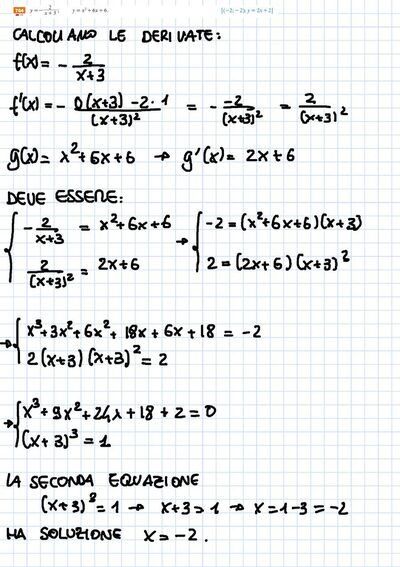 764 y = -2/(x+3); y = x² + 6x + 6. [(-2; -2); y = 2x + 2]
CALCOLIAMO LE DERIVATE:
f(x) = - 2/(x+3)
f'(x) = - (0(x+3) - 2·1)/(x+3)² = - (-2)/(x+3)² = 2/(x+3)²
g(x) = x² + 6x + 6 → g'(x) = 2x + 6
DEVE ESSERE:
{ - 2/(x+3) = x² + 6x + 6 → { -2 = (x² + 6x + 6)(x+3)
2/(x+3)² = 2x + 6 2 = (2x+6)(x+3)²
→ { x³ + 3x² + 6x² + 18x + 6x + 18 = -2
2(x+3)(x+3)² = 2
→ { x³ + 9x² + 24x + 18 + 2 = 0
(x+3)³ = 1
LA SECONDA EQUAZIONE
(x+3)³ = 1 → x+3 = 1 → x = 1-3 = -2
HA SOLUZIONE x = -2.